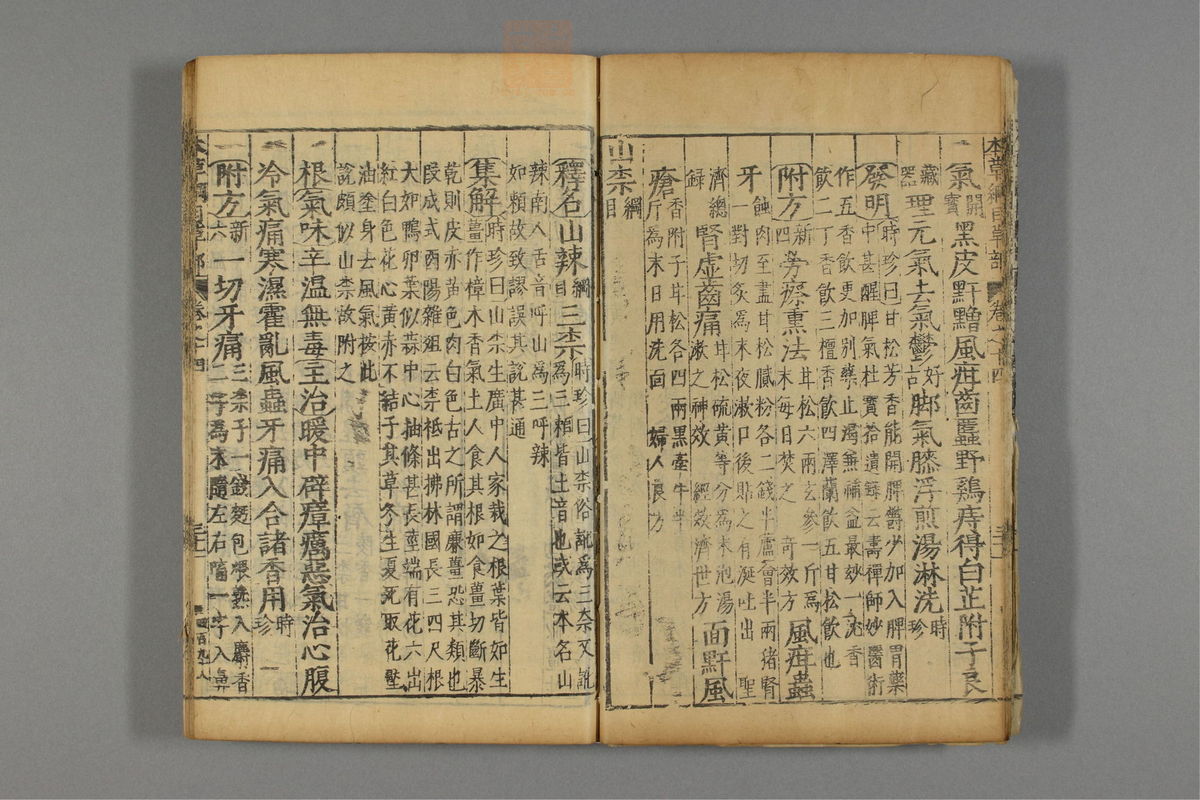 氣黑皮䵟䵳風疳齒䘌野雞痔得白芷附子良
開寶
藏器
理元氣去氣鬱好古脚氣膝浮煎湯淋洗時珍
發明時珍曰甘松芳香能開脾鬱少加入脾胃藥
中甚醒脾氣杜寶拾遺錄云壽禪師妙醫術
作五香飲更加別藥止渴兼補益最妙一沈香
飲二丁香飲三檀香飲四澤蘭飲五甘松飲也
附方新四勞瘵熏法甘松六兩玄參一斤爲末每日焚之 奇效方 風疳蟲
牙蝕肉至盡甘松膩粉各二錢半蘆會半兩猪腎
一對切炙爲末夜漱口後貼之有涎吐出 聖
濟總錄 腎虛齒痛甘松硫黃等分爲末泡湯漱之神效 經效濟世方 面䵟風
瘡香附子甘松各四兩黑牽牛半斤爲末日用洗面 婦人良方
山柰綱目
釋名山辣綱目三柰時珍曰山柰俗訛爲三柰又訛
爲三賴皆土音也或云本名山
辣南人舌音呼山爲三呼辣
如賴故致謬誤其說甚通
集解時珍曰山柰生廣中人家栽之根葉皆如生
薑作樟木香氣土人食其根如食薑切斷暴
乾則皮赤黃色肉白色古之所謂廉薑恐其類也
段成式酉陽雜俎云柰祗出拂林國長三四尺根
大如鴨卵葉似蒜中心抽條甚長莖端有花六出
紅白色花心黃赤不結子其草冬生夏死取花壓
油塗身去風氣按此
說頗似山柰故附之
根氣味辛温無毒主治暖中辟瘴癘惡氣治心腹
冷氣痛寒濕霍亂風蟲牙痛入合諸香用時珍
附方新六一切牙痛三柰子一錢麪包煨熟入麝香
二字爲末隨左右㗜一字入鼻
本草綱目草部 卷之十四